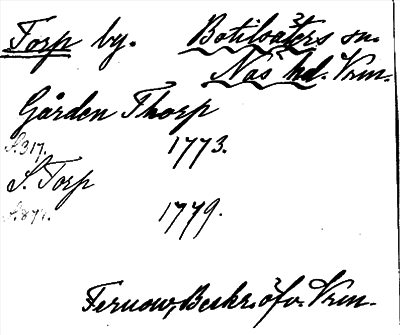 Torp by. Botilsäters sn.
Näs hd. Vrm.
Gården Thorp
S.317. 1773.
S. Torp
1779.
Fernow, Beskr. öfv. Vrm.